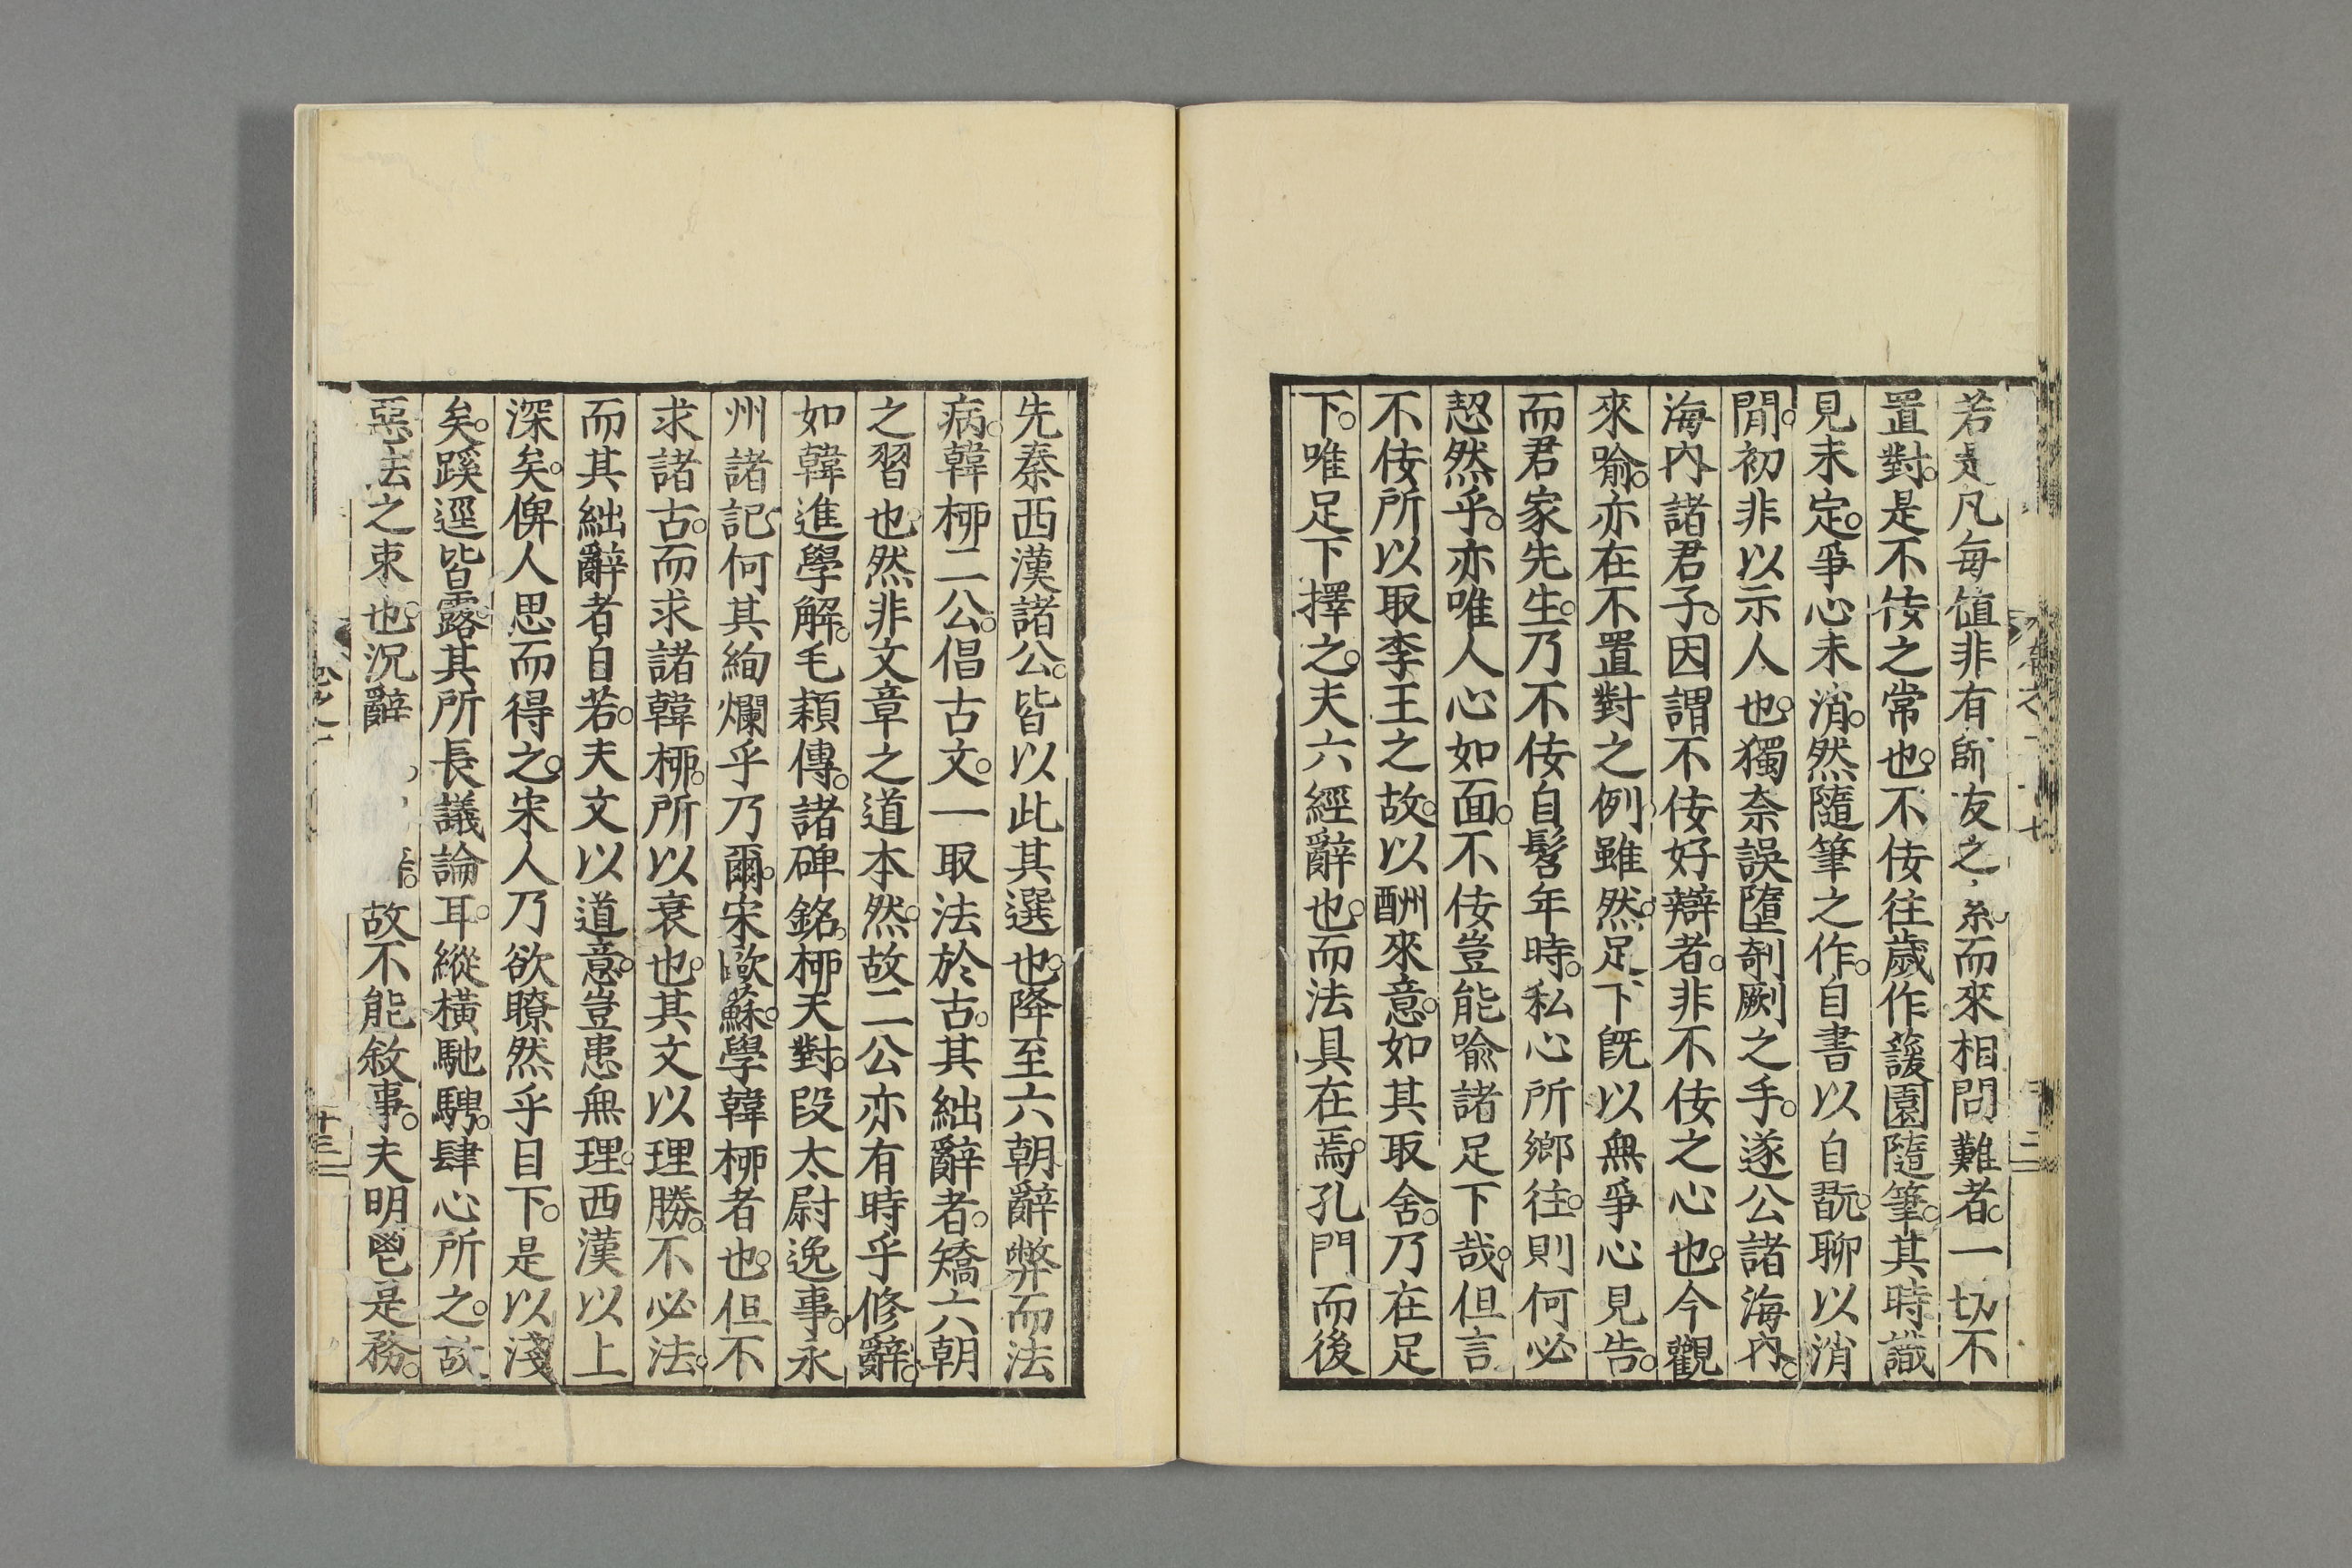 若是凡每值非有師友之系而來相問難者。一切不
置對。是不侫之常也。不侫往歲作蘐園隨筆。其時識
見未定。爭心未消。然隨筆之作。自書以自翫。聊以消
閒。初非以示人也。獨奈誤墮剞劂之手。遂公諸海內。
海內諸君子。因謂不侫好辯者。非不侫之心也。今觀
來喻。亦在不置對之例。雖然。足下旣以無爭心見告。
而君家先生。乃不侫自髫年時。私心所鄉往。則何必
恝然乎。亦唯人心如面。不侫豈能喻諸足下哉。但言
不侫所以取李王之故。以酬來意。如其取舍。乃在足
下。唯足下擇之。夫六經辭也。而法具在焉。孔門而後
先秦西漢諸公。皆以此其選也。降至六朝辭弊而法
病。韓柳二公。倡古文。一取法於古。其絀辭者。矯六朝
之習也。然非文章之道本然。故二公亦有時乎修辭。
如韓進學解。毛穎傳。諸碑銘。柳天對。段太尉逸事。永
州諸記。何其絢爛乎乃爾。宋歐蘇。學韓柳者也。但不
求諸古。而求諸韓柳。所以衰也。其文以理勝。不必法。
而其絀辭者自若。夫文以道意。豈患無理。西漢以上
深矣。俾人思而得之。宋人乃欲瞭然乎目下。是以淺
矣。蹊逕皆露。其所長議論耳。縱橫馳騁。肆心所之。故
惡法之束也。況辭
故不能敘事。夫明鬯是務。
十三